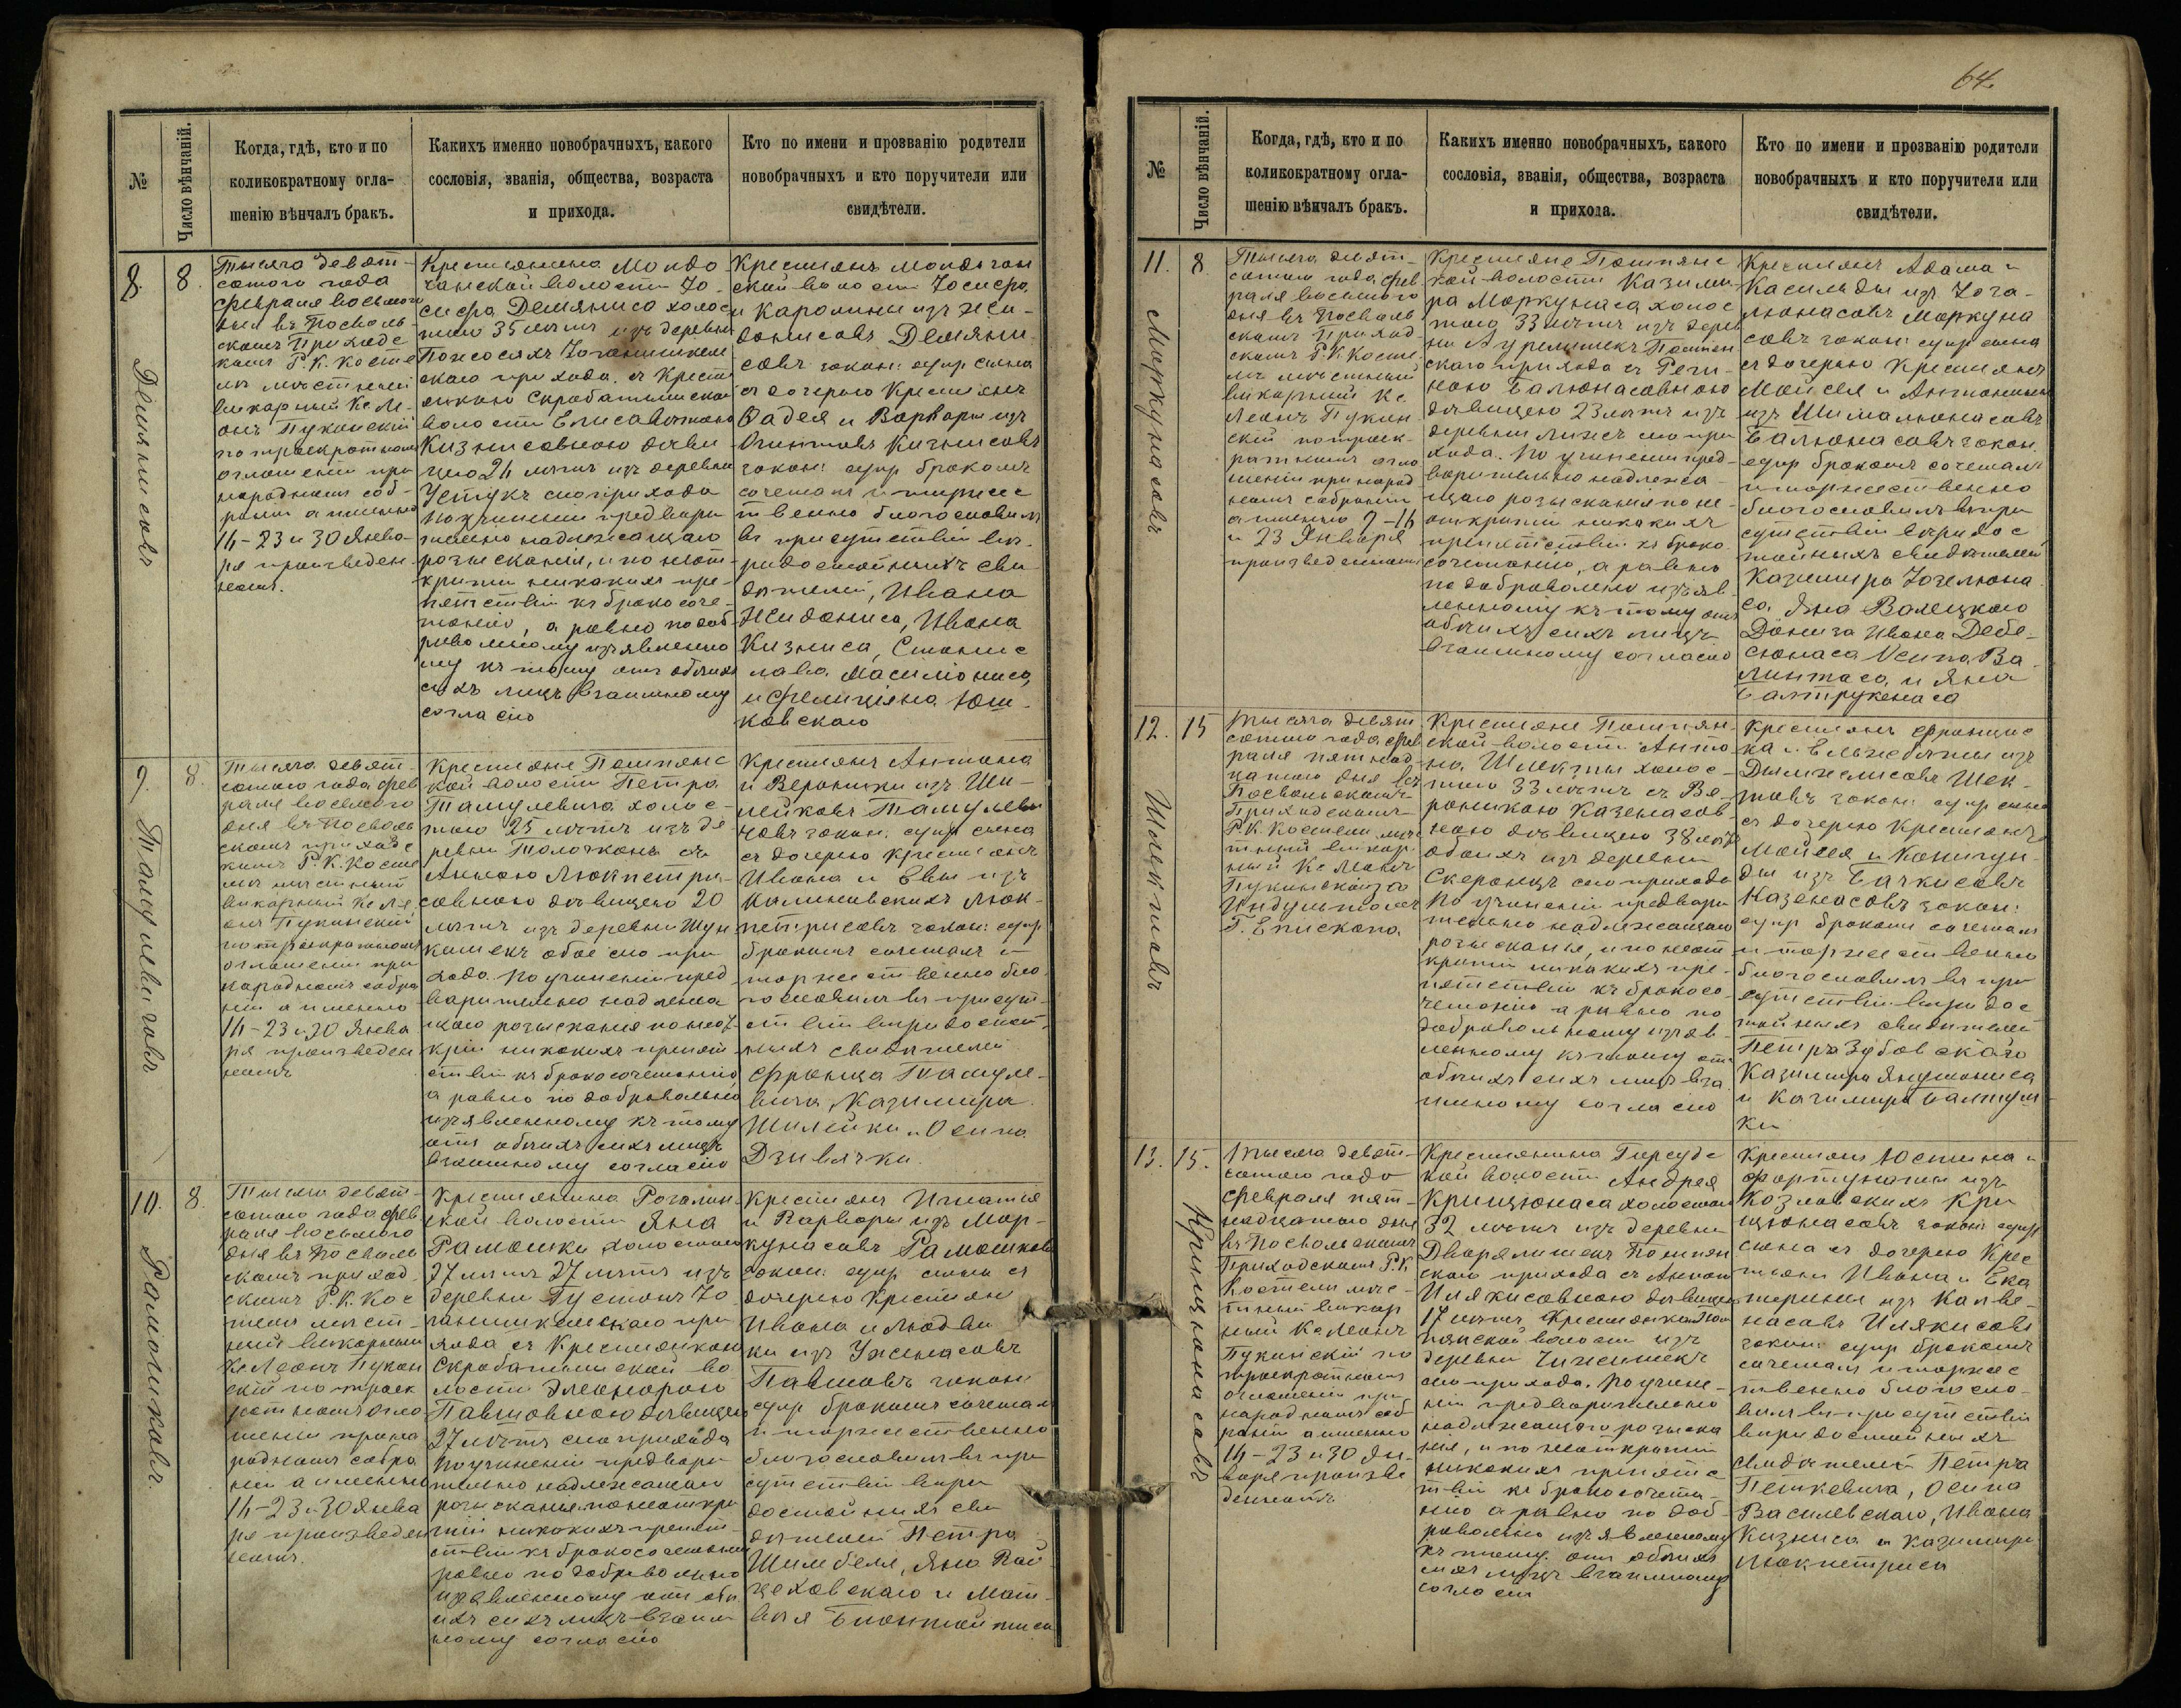 №
Число вѣнчаній.
Когда, гдѣ, кто и по
коликократному огла-
шенію вѣнчалъ бракъ.
Какихъ именно новобрачныхъ, какого
сословія, званія, общества, возраста
и прихода.
Кто по имени и прозванію родители
новобрачныхъ и кто поручители или
свидѣтели.
8.
8.
Тысяча девят-
сотого года
февраля восьмого
дня въ Посволь-
скомъ Приходс
комъ Р. К. Косте
лѣ мѣстный
викарный Кс Ле-
онъ Пуконскій
по троекратномъ
оглашеніи при
народномъ соб-
раніи а именно
16-23 и 30 Янва-
ря произведен-
номъ.
Крестьянина
ганской волости Іо-
сифа Демяниса холос
того 35 лѣтъ изъ деревни
скаго прихода съ Кресть
янкою Скробатишской
волости Елисаветою
Кизнисовною дѣви
цею 24 лѣтъ изъ деревни
Устукъ сего прихода
По учиненіи предвари
тельно надлежащаго
розысканія, и по неот-
крытіи никакихъ пре-
пятствій къ бракосоче-
танію, а равно по доб-
ровольному изъявленно
му къ тому отъ обѣихъ
сихъ лицъ взаимному
согласію
Крестьянъ
ской волости Іосифа
и Каролины изъ Жи-
донисовъ Демяни-
совъ закон: супр сына
съ дочерью Крестьянъ
Фадея и Варвары изъ
Кизнисовъ
закон: супр бракомъ
сочеталъ и торжес
твенно благословилъ
въ присутствіи вѣ-
ридостойныхъ сви
дѣтелей, Ивана
Жидониса, Ивана
Кизниса, Станис
лава Масилюниса,
и Фелиціяна Юш-
ковскаго
Демянисовъ
9.
8.
Тысяча девят-
сотого года фев
раля восьмого
дня въ Посволь
скомъ приходс
комъ Р. К. Косте
лѣ мѣстный
викарный Кс Ле
онъ Пуконскій
по троекратномъ
оглашеніи при
народномъ собра
ніи а именно
16-23 и 30 Янва
ря произведен
номъ
Крестьяне Помпянс
кой волости Петра
Тамулевича холос-
того 25 лѣтъ изъ де
ревни Толочконъ съ
Анною Люкпетри-
совною дѣвицею 20
лѣтъ изъ деревни
обое сего при
хода. По учиненіи пред
варительно надлежа
щаго розысканія по неот
крыт никакихъ препят
ствій къ бракосочетанію
а равно по добровольно
изъявленному къ тому
отъ обѣихъ сихъ лицъ
взаимному согласію
Крестьянъ Антона
и Вероники изъ Ши-
лейковъ Тамулеви
човъ закон: супр сына
съ дочерью Крестьянъ
Ивана и Евы изъ
Калиновскихъ Люк-
петрисовъ закон: супр
бракомъ сочеталъ и
торжественно бла-
гословилъ въ присут-
ствіи виридостой-
ныхъ свидѣтелей
Франца Тамуле-
вича, Казимира
Шилейки и Осипа
Дзивячки.
Тамулевичовъ
10.
8.
Тысяча девят-
сотого года фев
раля восьмого
дня въ Посволь
скомъ приход
скомъ Р. К. Кос
телѣ мѣст-
ный викарный
Кс Леонъ Пукон
скій по троек
ратномъ огла
шеніи при на
родномъ собра
ніи а именно
16-23 и 30 Янва
ря произведен
номъ.
Крестьянина Рогалин-
ской волости Яна
Рамошки холостого
27 лѣтъ 27 лѣтъ изъ
деревни Густонъ Іо
ганишкельскаго при
хода съ Крестьянкою
Скробатишской во
лости Элеонорою
Павиловною дѣвицею
27 лѣтъ сего прихода
По учиненіи предвари
тельно надлежащаго
розысканья по неоткры
тіи никакихъ препят-
ствій къ бракосочетанію
равно по добровольно
изъявленному отъ обѣ
ихъ сихъ лицъ взаим
ному согласію
Крестьянъ Игнатія
и Варвары изъ Мар-
кунасовъ Рамошковъ
закон: супр сына съ
дочерью Крестьян
Ивана и Людви
ки изъ Ужинасовъ
закон:
супр бракомъ сочеталъ
и торжественно
благословилъ въ при
сутствіи вири
достойныхъ сви
дѣтелей Петра
Шимбеля, Яна Рай
цеховскаго и Мат-
вѣя
Рамошковъ.
64.
№
Число вѣнчаній.
Когда, гдѣ, кто и по
коликократному огла-
шенію вѣнчалъ бракъ.
Какихъ именно новобрачныхъ, какого
сословія, званія, общества, возраста
и прихода.
Кто по имени и прозванію родители
новобрачныхъ и кто поручители или
свидѣтели.
11.
8.
Тысяча девят-
сотого года фев
раля восьмого
дня въ Посволь
скомъ Приход
скомъ Р. К. Косте
лѣ мѣстный
викарный Кс
Леонъ Пукон
скій по троек-
ратномъ огла
шеніи при народ
номъ собраніи
а именно 9-16
и 23 Января
произведенномъ
Крестьяне Помпянс
кой волости Казими-
ра Маркунаса холос
того 33 лѣтъ изъ дерев
ни Помпян
скаго прихода съ Реги-
ною Балюнасовною
дѣвицею 23 лѣтъ изъ
деревни сего при
хода. По учиненіи пред-
варительно надлежа-
щаго розысканія по не-
открытіи никакихъ
препятствій къ брако-
сочетанію, а равно
по добровольно изъяв-
ленному къ тому отъ
обѣихъ сихъ лицъ
взаимному согласію
Крестьянъ Адама и
Касильды изъ Юза-
люнасовъ Маркуна
совъ закон: супр сына
съ дочерью Крестьянъ
Мойсея и Антонины
изъ Шималюнасовъ
Балюнасовъ закон.
супр бракомъ сочеталъ
и торжественно
благословилъ въ при
сутствіи виридос
тойныхъ свидѣтелей
Казимира Юзелюна
са Яна Валецкаго
Дониза Ивана Дебе-
сюнаса Осипа Ва
линтаса и Яна
Балтрукенаса
Маркунасовъ
12.
15
Тысяча девят
сотого года фев
раля пятнад
цатого дня въ
Посвольскомъ
Приходскомъ
Р. К. Костелѣ мѣс
тный викар
ный Кс Леонъ
Пуконскій за
Индультомъ
Г. Епископа
Крестьяне Помпян-
ской волости Анто
на Шлекты холос-
того 33 лѣтъ съ Ве-
роникою Казенасов
ною дѣвицею 38 лѣтъ
обоихъ изъ деревни
сего прихода
По учиненіи предвари
тельно надлежащаго
розысканья, и по неот
крытіи никакихъ пре-
пятствій къ бракосо-
четанію а равно по
добровольному изъяв-
ленному къ тому отъ
обѣихъ сихъ лицъ вза
имному согласію
Крестьянъ Францис
ка и Ельжебеты изъ
Шлек-
товъ закон: супр сына
съ дочерью Крестьянъ
Мойсея и Конигун-
ды изъ Бачкисовъ
Казенасовъ закон:
супр бракомъ сочеталъ
и торжественно
благословилъ въ при
сутствіи виридос
тойныхъ свидѣтелей
Петра Зубовскаго
Казимира Янушониса
и Казимира
ки
Шлектовъ
13.
15.
Тысяча девят-
сотого года
Февраля пят-
надцатого дня
въ Посвольскомъ
Приходскомъ Р. К.
Костелѣ мѣс-
тный викар
ный Кс Леонъ
Пуконскій по
троекратномъ
оглашеніи при
народномъ соб
раніи а именно
16-23 и 30 Ян-
варя произве
денномъ
Крестьянина Гирсудс
кой волости Андрея
Крицюнаса холостого
32 лѣтъ изъ деревни
Помпян
скаго прихода съ Анною
Илякисовною дѣвицею
17 лѣтъ Крестьянкою Пом
пянской волости изъ
деревни
сего прихода. По учине-
ніи предварительно
надлежащаго розыска
нія, и по неоткрытіи
никакихъ препятс
твій къ бракосочета-
нію а равно по доб
ровольно изъявленному
къ тому отъ обѣихъ
сихъ лицъ взаимному
согласію
Крестьянъ Юстина и
Фортунаты изъ
Козловскихъ Кри
цюнасовъ закон: супр
сына съ дочерью Крес
тьянъ Ивана и Ека
терины изъ Калве-
насовъ Илякисовъ
закон: супр бракомъ
сочеталъ и торжес
твенно благосло-
вилъ въ присутствіи
виридостойныхъ
свидѣтелей Петра
Петкевича, Осипа
Василевскаго, Ивана
Кизниса и Казимира
Люкпетриса
Крицюнасовъ